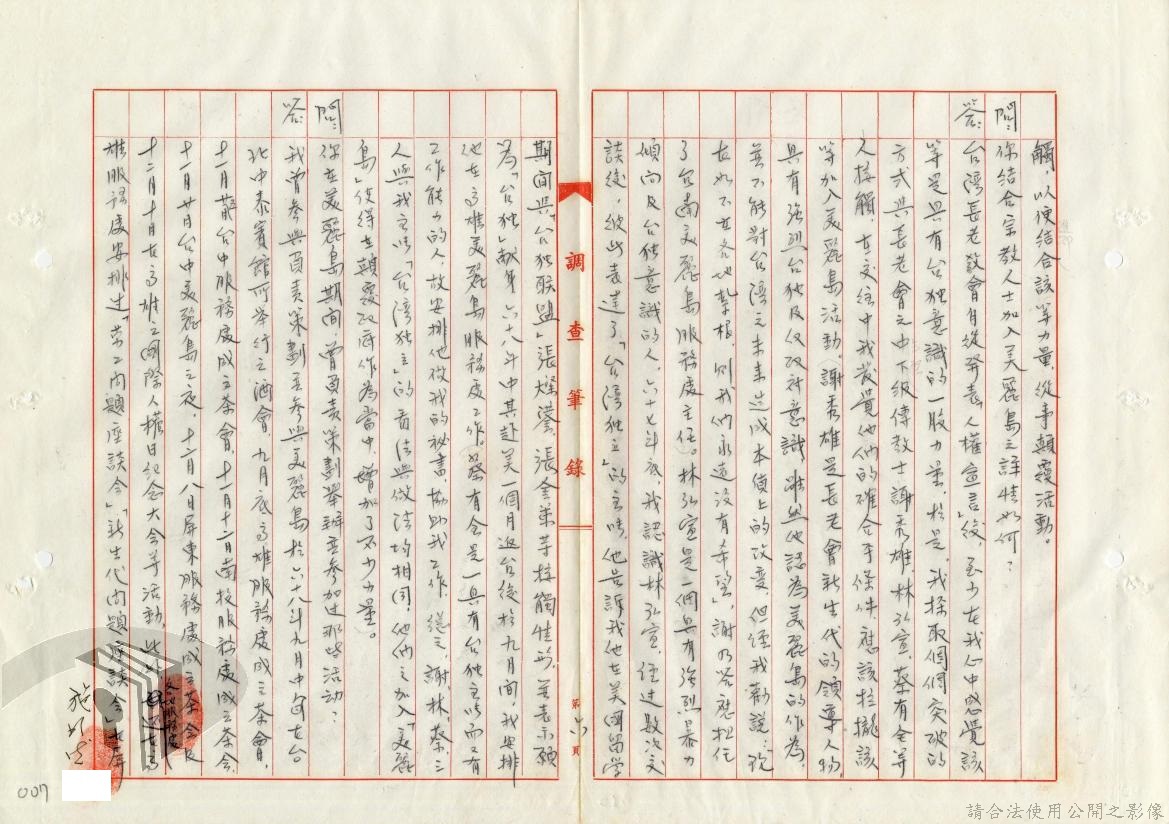 觸，以便結合該等力量，從事顛覆活動。
問：你結合宗教人士加入美麗島之詳情如何？
答：台灣長老教會自從發表「人權宣言」後，至少在我心中感覺該
等是具有台獨意識的一股力量，於是，我採取個個突破的
方式與長老會之中下級傳教士謝秀雄、林弘宣、蔡有全等
人接觸，在交往中我發覺他們的確合乎條件，應該拉攏該
等加入美麗島活動（謝秀雄是長老會新生代的領導人物，
具有強烈台獨及反政府意識，雖然他認為美麗島的作為，
並不能對台灣之未來造成本質上的改變，但經我勸說：「現
在如不在各地紮根，則我們永遠沒有希望」，謝乃答應担任
了台南美麗島服務處主任。林弘宣是一個具有強烈暴力
傾向及台獨意識的人，六十七年底，我認識林弘宣，經過數次交
談後，彼此表達了「台灣獨立」的主張，他告訴我他在美國留學
調查筆錄
第六頁
期間與「台獨聯盟」張燦鍙、張金策等接觸情形，並表示願
為「台獨」獻身，六十八年中其赴美一個月返台後於九月間，我安排
他在高雄美麗島服務處工作。蔡有全是一具有台獨主張而又有
工作能力的人，故安排他做我的秘書，協助我工作，總之，謝、林、蔡三
人與我主張「台灣獨立」的看法與做法均相同，他們之加入「美麗
島」使得在顛覆政府作為當中，增加了不少力量。
問：你在美麗島期間，曾負責策劃舉辦並參加過那些活動？
答：我曾參與負責策劃並參與美麗島於六十八年九月中旬在台
北中泰賓館所舉行之酒會，九月底高雄服務處成立茶會，
十一月前台中服務處成立茶會，十一月十二日南投服務處成立茶會，
十一月廿日台中美麗島之夜，十二月八日屏東服務處成立茶會及
十二月十日在高雄之國際人權日紀念大會等活動，此外
雄服務處安排过「勞工問題座談會」「新生代問題座談會」
施明德
007
請合法使用公開之影像